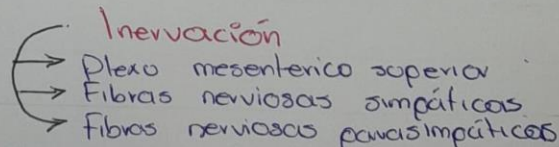 Inervación
Plexo mesenterico superior
Fibras nerviosas simpáticas
Fibras nerviosas parasimpáticas